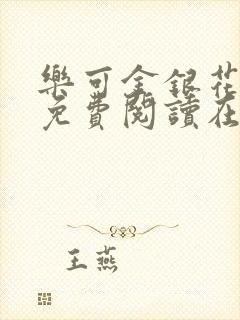 樂可金銀花
免費閱讀在
王燕